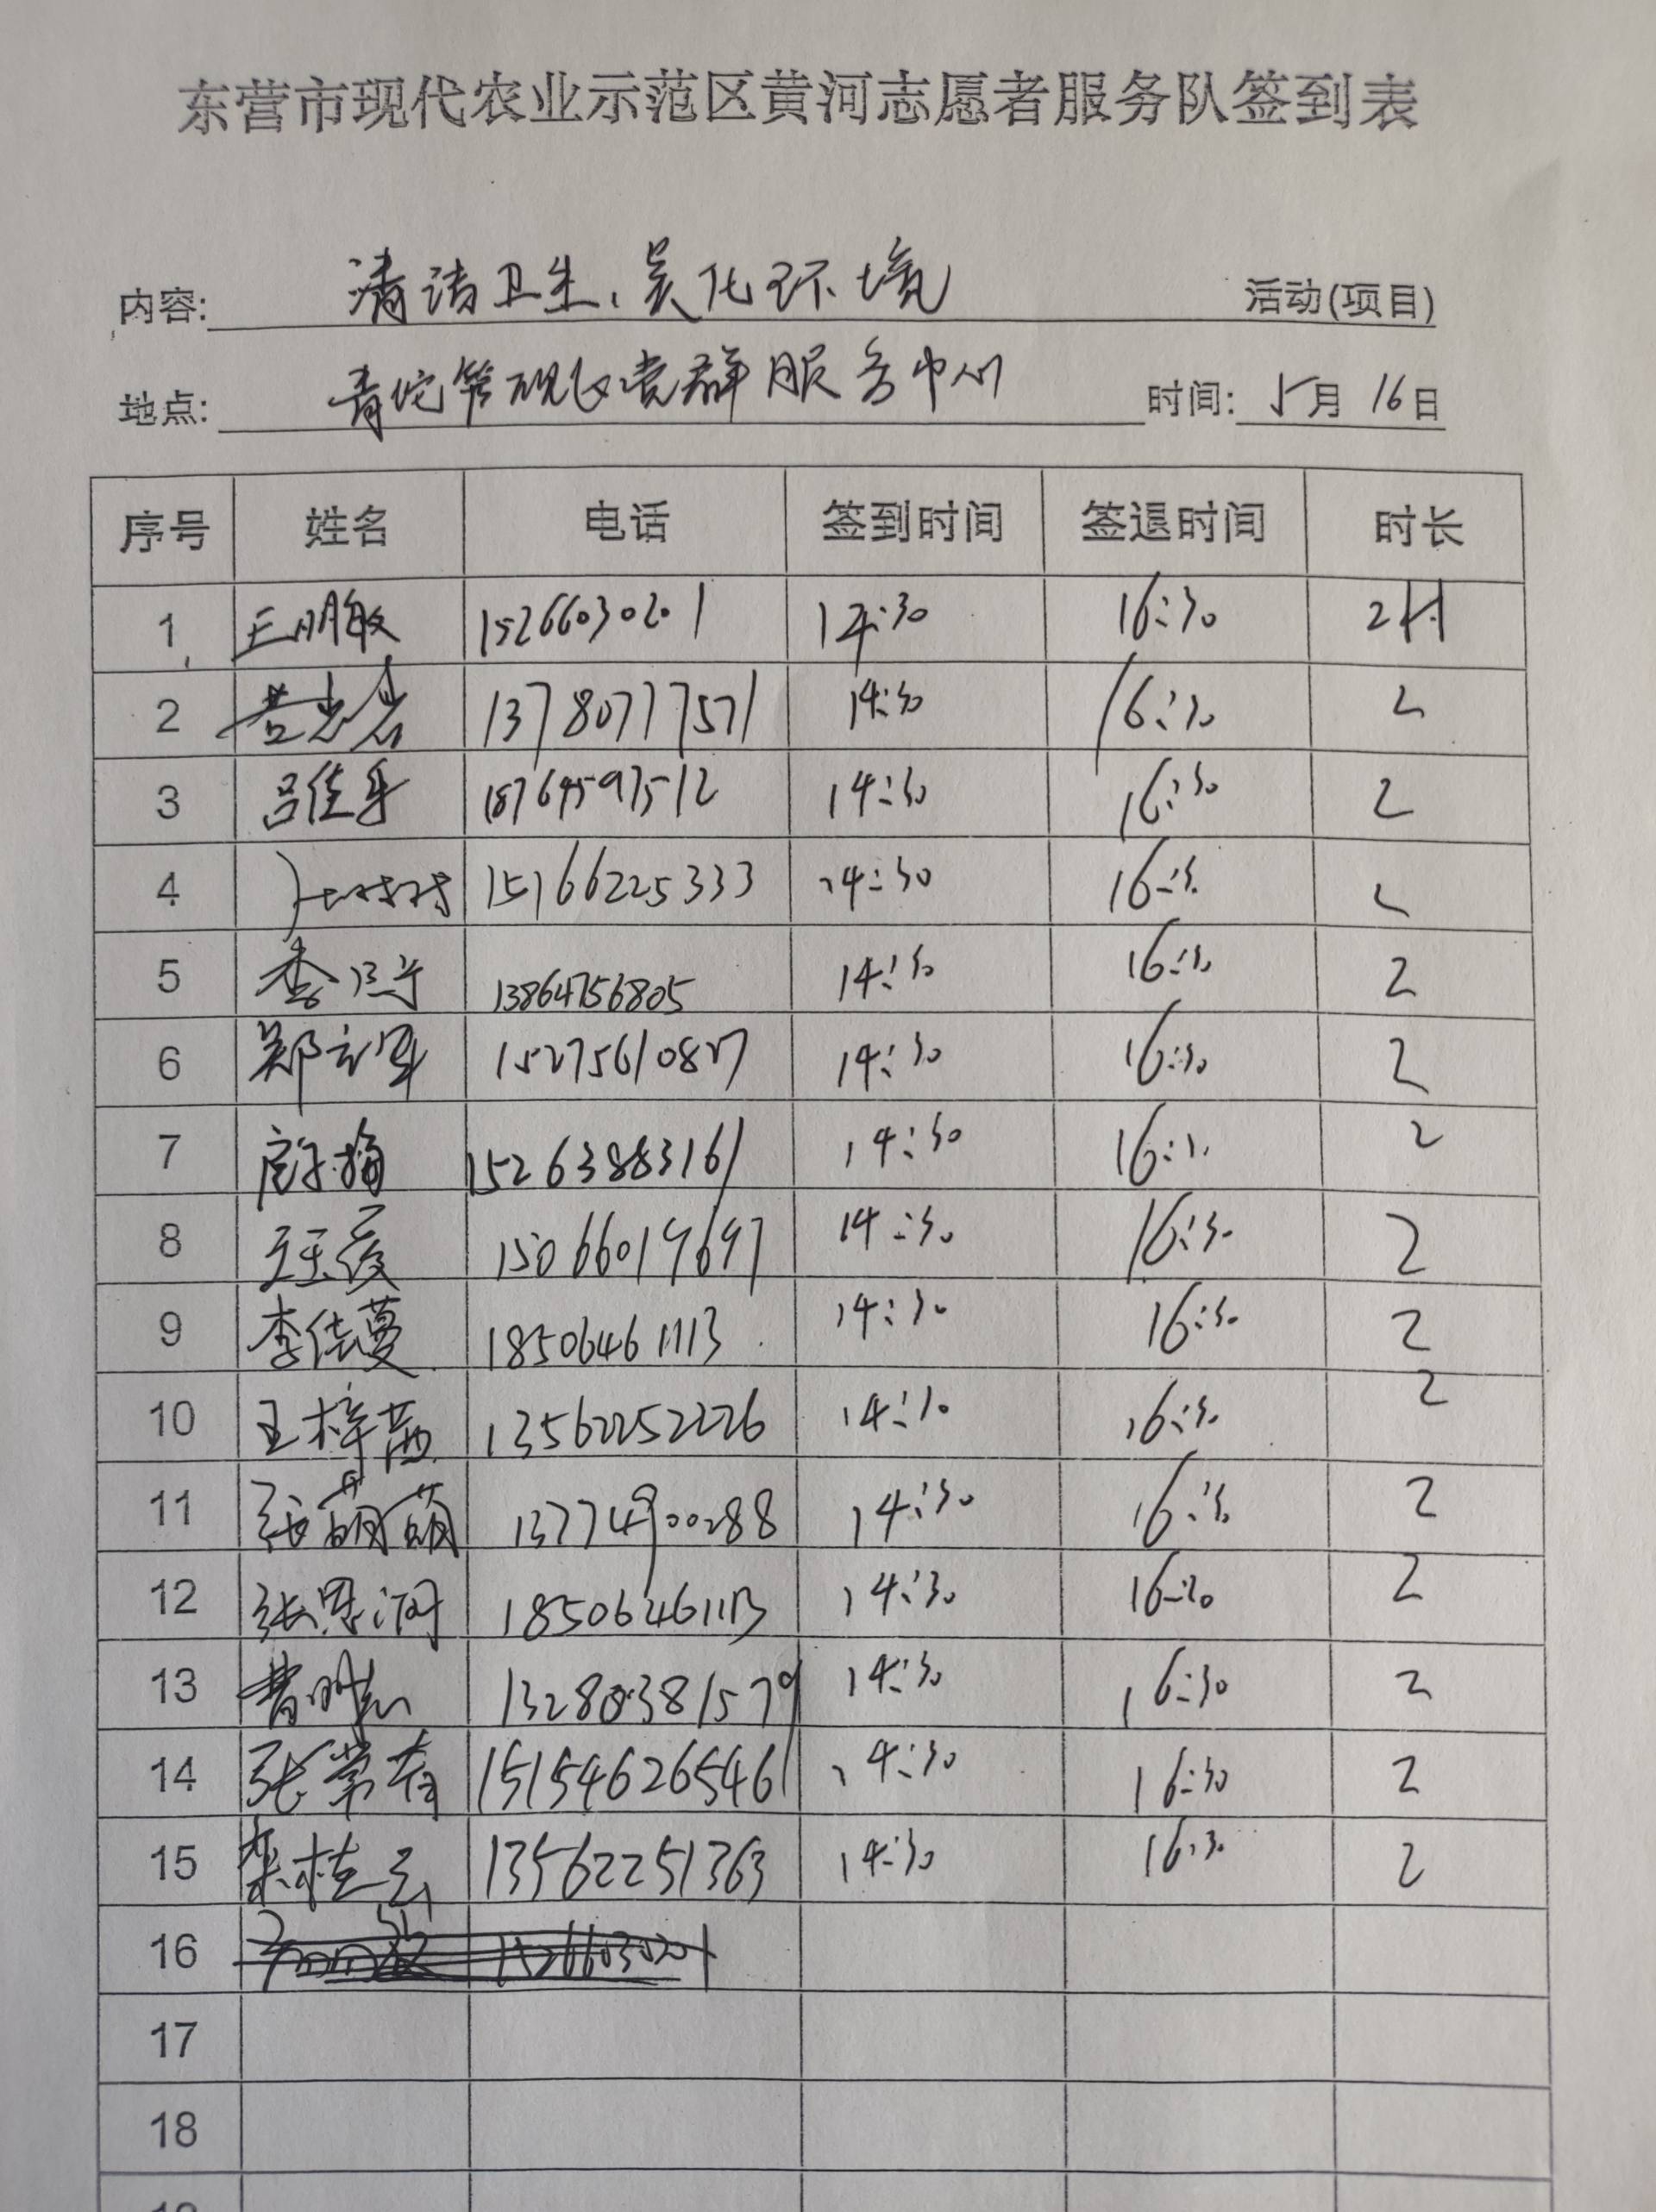 东营市现代农业示范区黄河志愿者服务队签到表
内容: 清洁卫生、美化环境 活动(项目)
地点: 党群服务中心 时间: 5月16日
序号 姓名 电话 签到时间 签退时间 时长
1 王明敏 15266030201 14:30 16:30 2H
2 13780777571 14:30 16:30 2
3 吕佳乐 14:30 16:30 2
4 15166225333 14:30 16:30 2
5 13864756805 14:30 16:30 2
6 郑立军 15275610827 14:30 16:30 2
7 15263883161 14:30 16:30 2
8 15066019697 14:30 16:30 2
9 李佳蔓 18506461113 14:30 16:30 2
10 王梓茜 13562252226 14:30 16:30 2
11 张萌萌 13774900288 14:30 16:30 2
12 张思河 18506461113 14:30 16:30 2
13 13280381579 14:30 16:30 2
14 张常春 15154626546 14:30 16:30 2
15 栾桂云 13562251363 14:30 16:30 2
16 15266030201
17
18